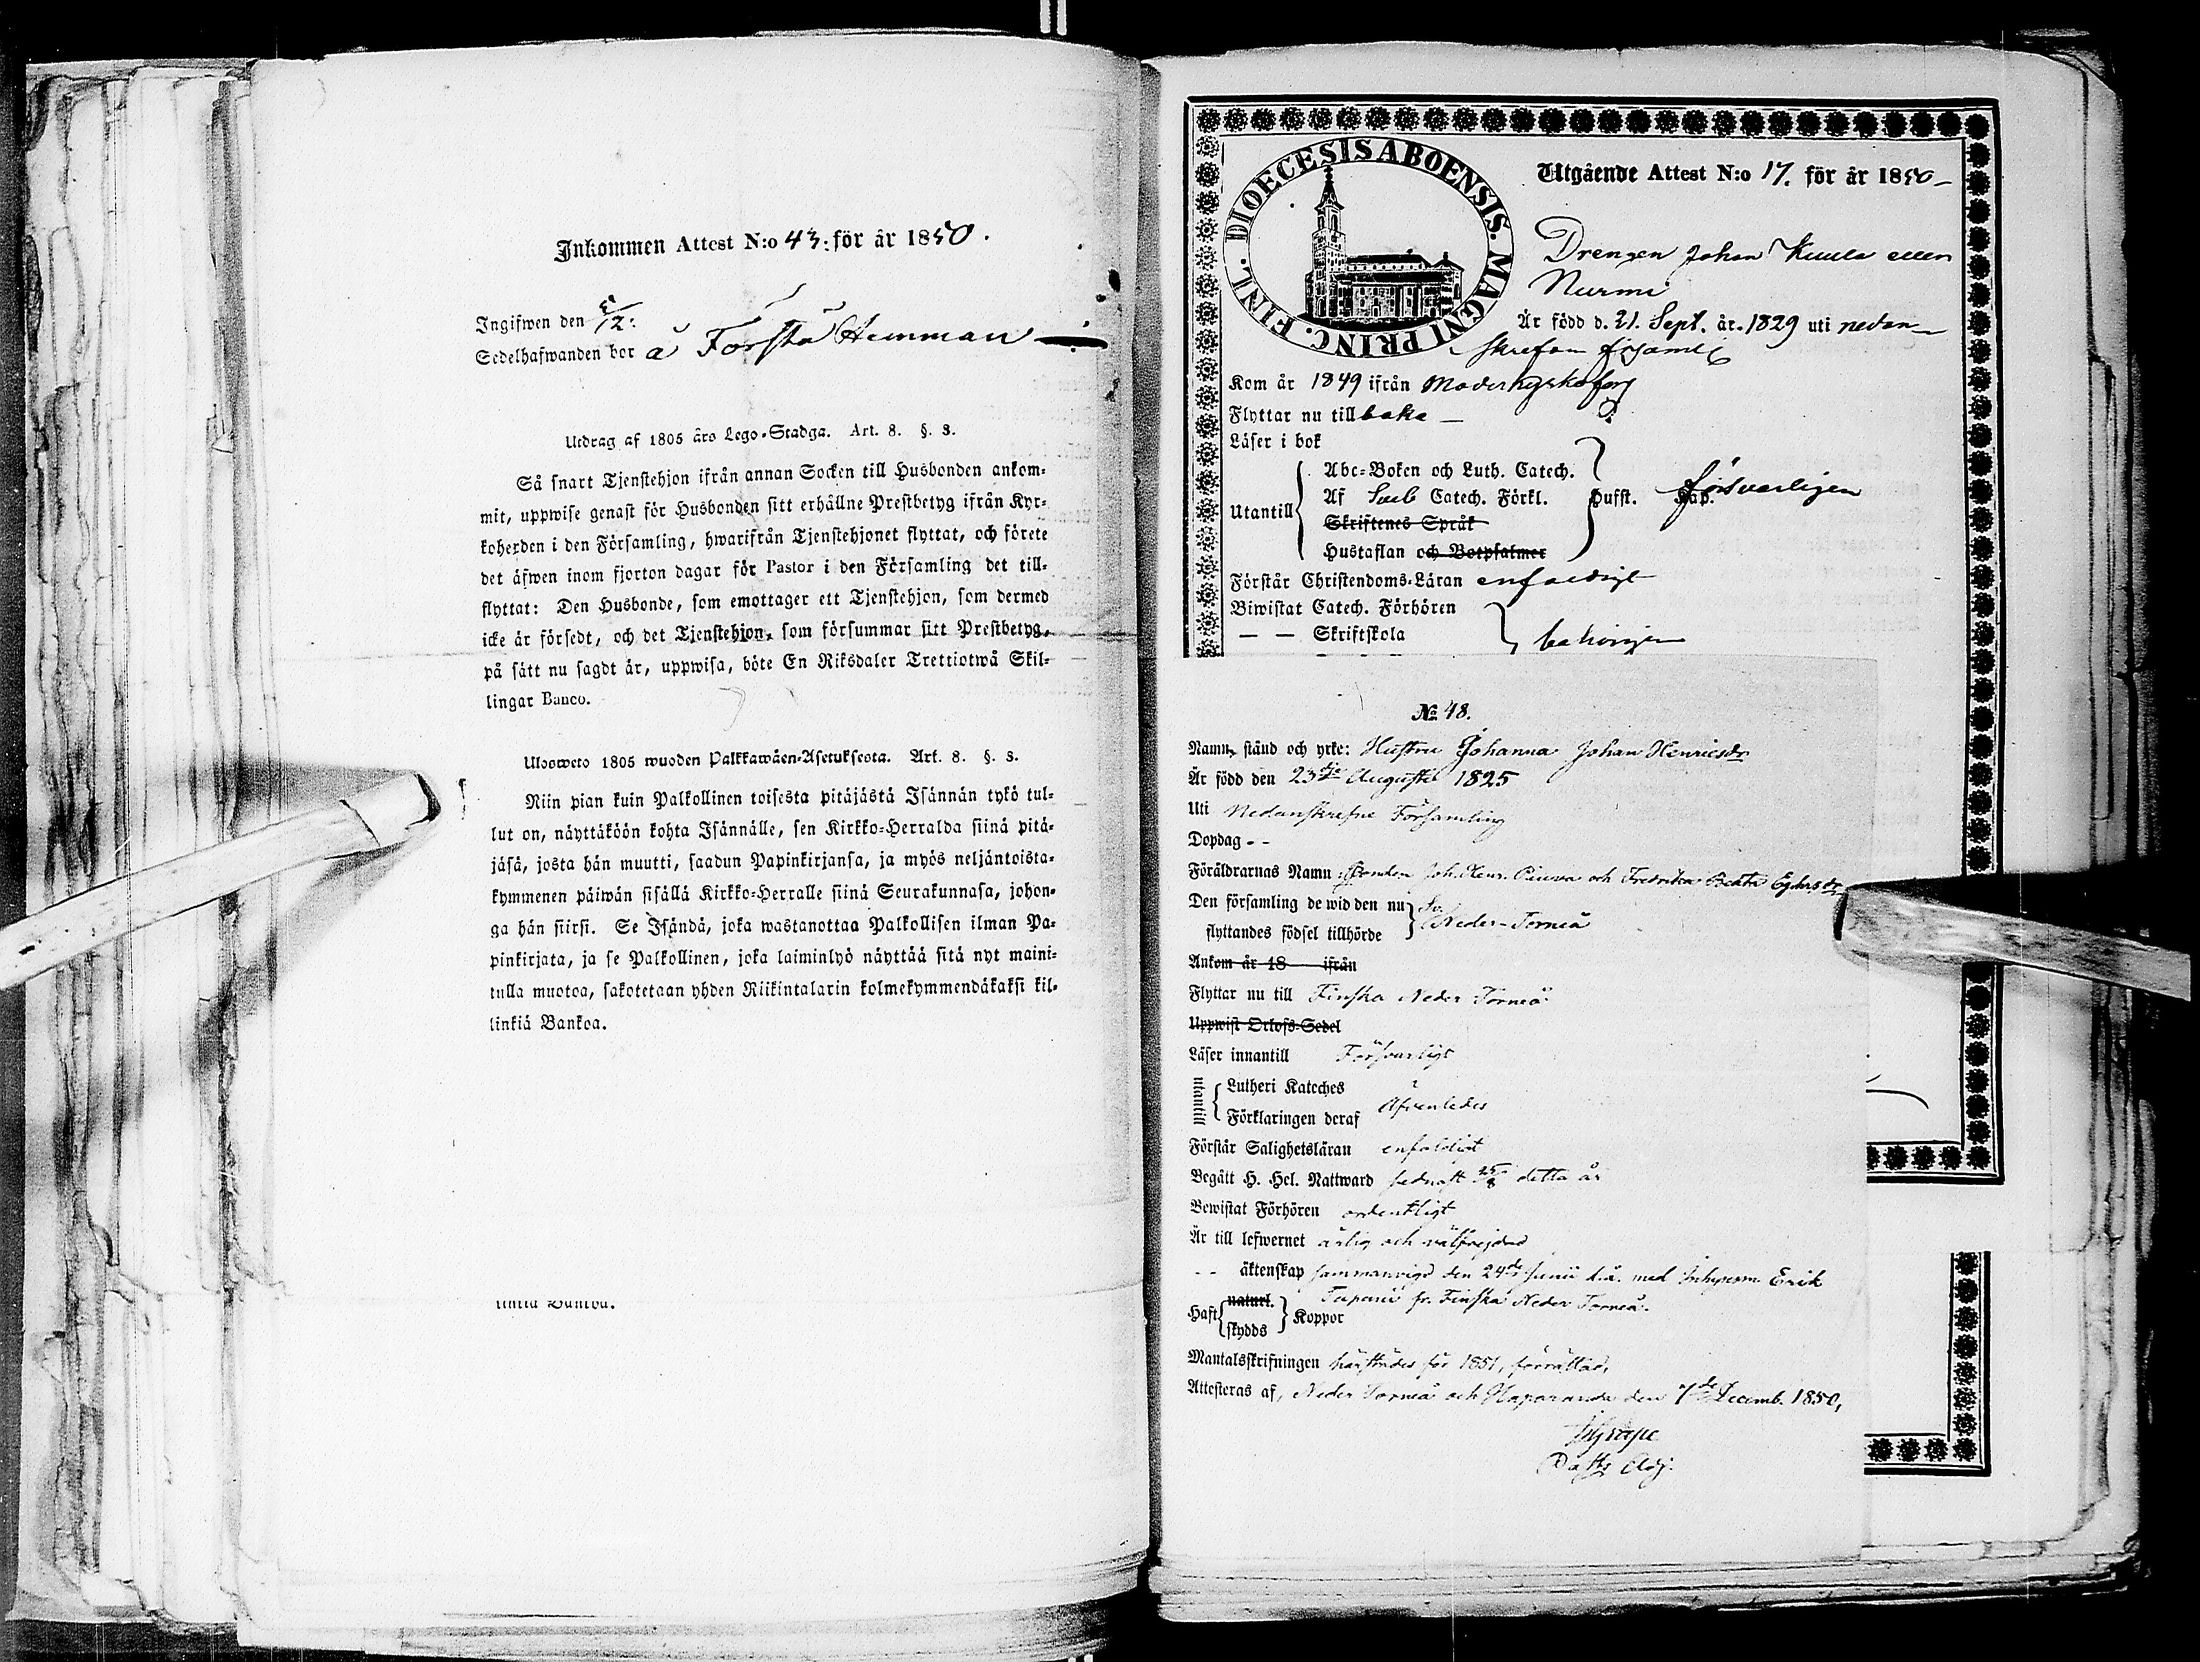 Inkommen Attest N:o 43: för år 1850.
Ingifwen den 5/12:
Sedelhafwanden bor å Första Hemman
Utdrag af 1805 års Lego-Stadga. Art. 8. §. 8.
Så snart Tjenstehjon ifrån annan Socken till Husbonden ankom-
mit, uppwise genast för Husbonden sitt erhållne Prestbetyg ifrån Kyr-
koherden i den Församling, hwarifrån Tjenstehjonet flyttat, och förete
det äfwen inom fjorton dagar för Pastor i den Församling det till-
flyttat: Den Husbonde, som emottager ett Tjenstehjon, som dermed
icke är försedt, och det Tjenstehjon, som försummar sitt Prestbetyg,
på sätt nu sagdt är, uppwisa, böte En Riksdaler Trettiotwå Skil-
lingar Banco.
Ulosweto 1805 wuoden Palkkawäen-Asetuksesta. Art. 8. §. 8.
Niin pian kuin Palkollinen toisesta pitäjästä Isännän tykö tul-
lut on, näyttäköön kohta Isännälle, sen Kirkko-Herralda siinä pitä-
jäsä, josta hän muutti, saadun Papinkirjansa, ja myös neljäntoista-
kymmenen päiwän sisällä Kirkko-Herralle siinä Seurakunnasa, johon-
ga hän siirsi. Se Isändä, joka wastanottaa Palkollisen ilman Pa-
pinkirjata, ja se Palkollinen, joka laiminlyö näyttää sitä nyt maini-
tulla muotoa, sakotetaan yhden Riikintalarin kolmekymmendäkaksi kil-
linkiä Bankoa.
DIOECESIS ABOENSIS. MAGNI PRINC. FINL.
Utgående Attest N:o 17. för år 1850
Drengen Johan Kuula eller
Nurmi
Är född d. 21. Sept. år 1829 uti nedan-
skrefan församlg
Kom år 1849 ifrån Moderkyrkoförs
Flyttar nu tillbaka
Läser i bok
Abc-Boken och Luth. Catech.
Utantill Af Sveb Catech. Förkl. Hufst. Kap. försvarligen
Skriftenes Språk
Hustaflan och Botpsalmer
Förstår Christendoms-Läran enfaldigt
Biwistat Catech. Förhören
— — Skriftskola behörigen
No 48.
Namn, stånd och yrke: Hustru Johanna Johan Henricsdr
Är född den 23dje Augusti 1825
Uti Nedanskrefne Församling
Dopdag - -
Föräldrarnas Namn Bonden Joh. Henr. och Fredrika Beata
Den församling de wid den nu Sv.
flyttandes födsel tillhörde Neder-Torneå
Ankom år 18 ifrån
Flyttar nu till Finska Neder Torneå
Uppwist Orlofs-Sedel
Läser innantill Försvarligt
utantill Lutheri Kateches
Förklaringen deraf Äfvenledes
Förstår Salighetsläran enfaldigt
Begått H. Hel. Nattward sednast 25/8 detta år
Bewistat Förhören ordentligt
Är till lefwernet ärlig och välfrejdad
- - äktenskap sammanvigd den 24de Junii d.å. med Inhysesm. Erik
Tapani fr. Finska Neder Torneå.
Haft naturl. skydds Koppor
Mantalsskrifningen härstädes för 1851, förrättad,
Attesteras af, Neder Torneå och Haparanda den 7de Decemb. 1850,
Past. Adj.